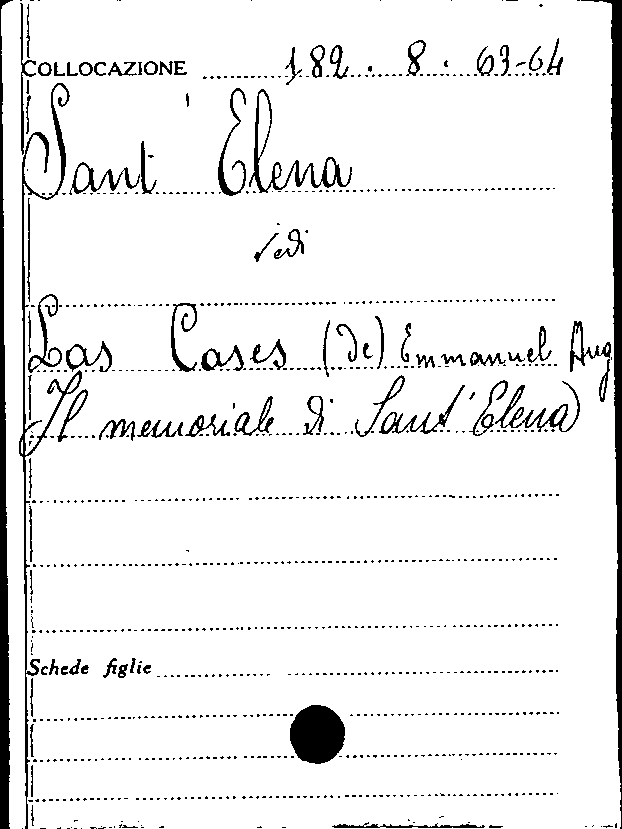 COLLOCAZIONE 182. 8. 63-64
Sant' Elena
Vedi
Las Cases (De) Emmanuel Aug
Il memoriale di Sant'Elena
Schede figlie